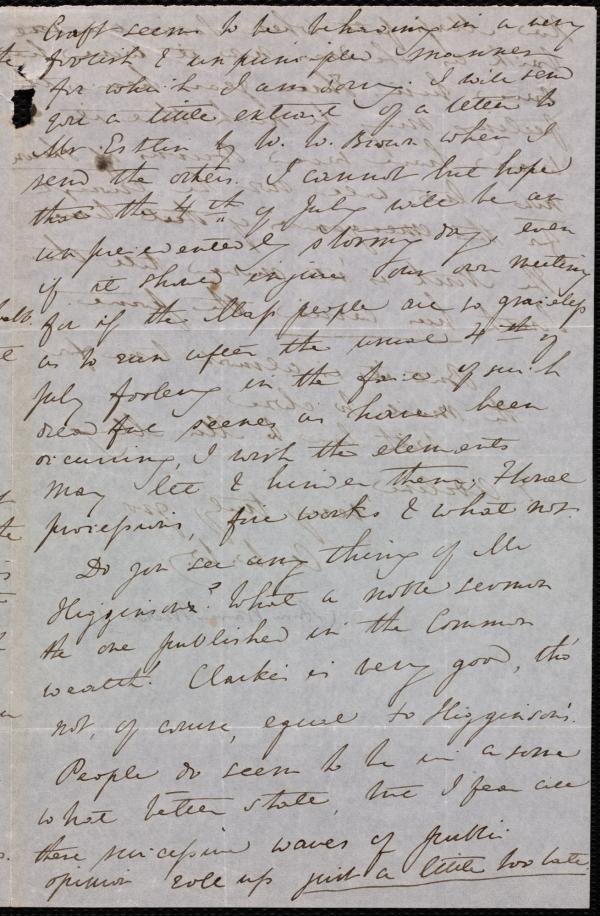 Craft seems to be behaving in a very
foolish & unprincipled manner
for which I am sorry. I will send
you a little extract of a letter to
Mr Estlin by W. W. Brown when I
send the others. I cannot but hope
that the 4th of July will be an
unprecedentedly stormy day, even
if it should injure our own meeting
for if the Mass people are so graceless
as to run after the usual 4th of
July fooleng in the face of such
dreadful scenes as have been
occurring, I wish the elements
may let & hinder them, Floral
processions, fire works & what not.
Do you see any thing of Mr
Higginson? What a noble sermon
the one published in the Common
wealth! Clarke's is very good, tho'
not, of course, equal to Higginson's.
People do seem to be in a some
what better state, but I fear all
these successive waves of public
opinion roll up just a little too late.